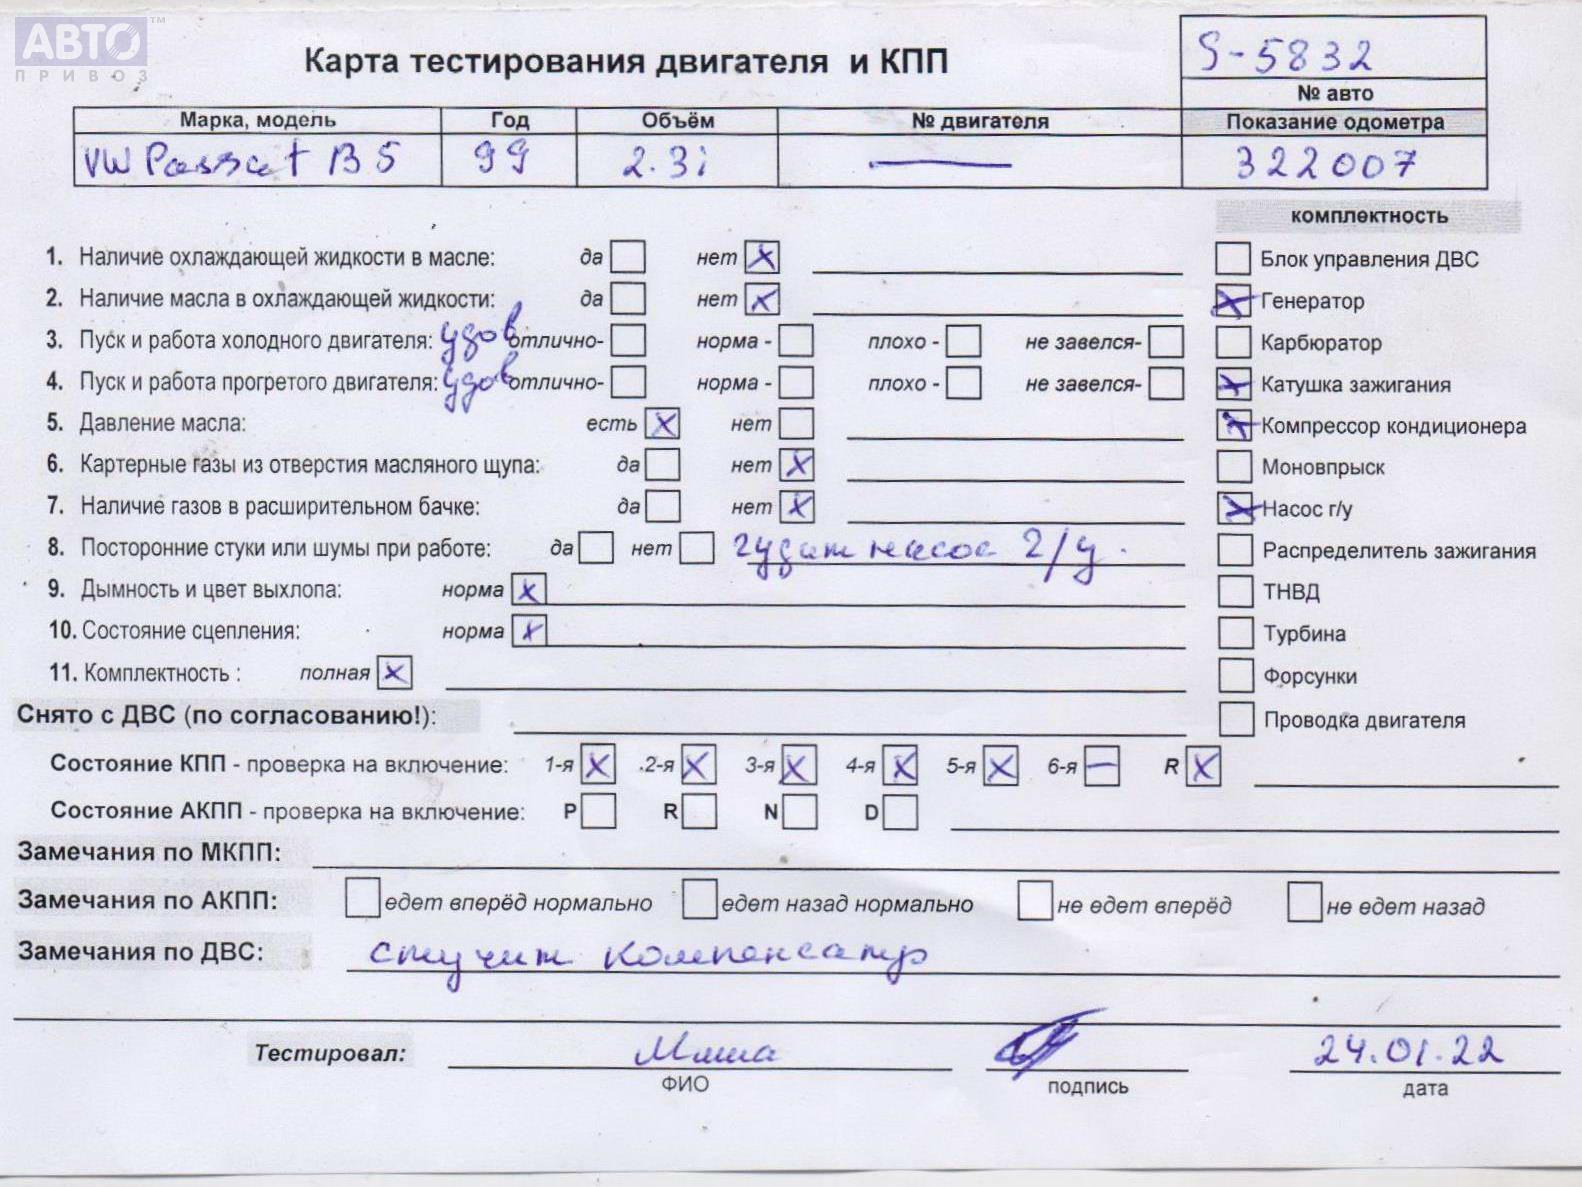 АВТО™
ПРИВОЗ
Карта тестирования двигателя и КПП
S-5832
№ авто
Марка, модель Год Объём № двигателя Показание одометра
VW Passat B5 99 2.3i — 322007
комплектность
1. Наличие охлаждающей жидкости в масле: да нет X
Блок управления ДВС
2. Наличие масла в охлаждающей жидкости: да нет X
X Генератор
3. Пуск и работа холодного двигателя: удов отлично- норма - плохо - не завелся-
Карбюратор
4. Пуск и работа прогретого двигателя: удов отлично- норма - плохо - не завелся-
X Катушка зажигания
5. Давление масла: есть X нет
X Компрессор кондиционера
6. Картерные газы из отверстия масляного щупа: да нет X
Моновпрыск
7. Наличие газов в расширительном бачке: да нет X
X Насос г/у
8. Посторонние стуки или шумы при работе: да нет гудит насос г/у.
Распределитель зажигания
9. Дымность и цвет выхлопа: норма X
ТНВД
10. Состояние сцепления: норма X
Турбина
11. Комплектность : полная X
Форсунки
Снято с ДВС (по согласованию!):
Проводка двигателя
Состояние КПП - проверка на включение: 1-я X 2-я X 3-я X 4-я X 5-я X 6-я — R X
Состояние АКПП - проверка на включение: P R N D
Замечания по МКПП:
Замечания по АКПП: едет вперёд нормально едет назад нормально не едет вперёд не едет назад
Замечания по ДВС: стучит компенсатр
Тестировал: Миша 24.01.22
ФИО подпись дата